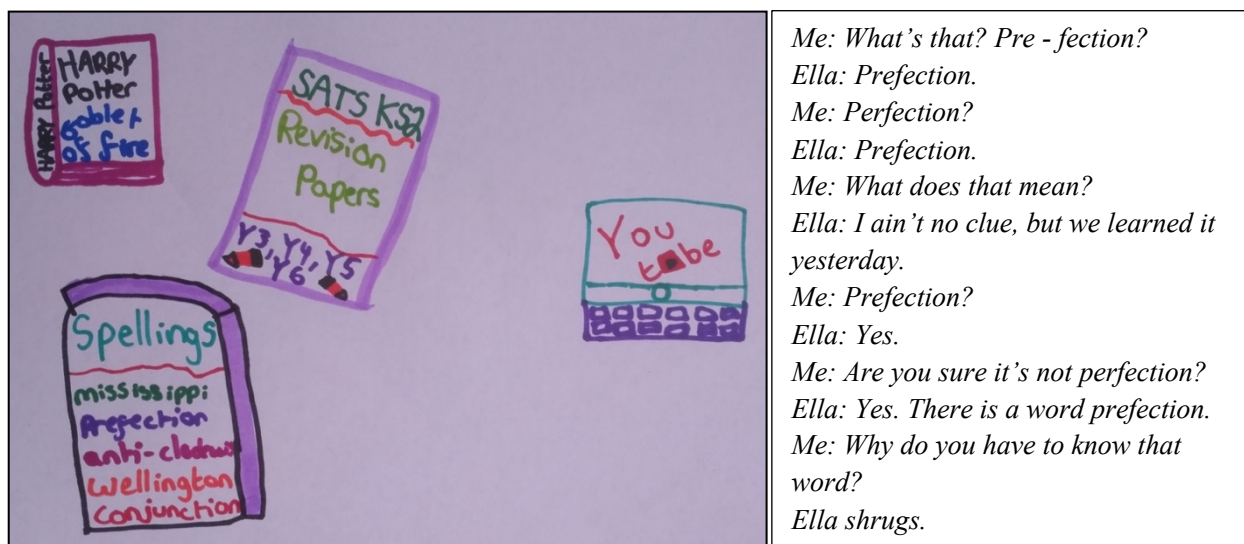 HARRY Potter
HARRY
Potter
Goblet
of fire
SATS KS2
Revision
Papers
Y3, Y4, Y5
Y6
You
tube
Spellings
mississippi
Prefection
anti-clockwis
Wellington
Conjunction
Me: What’s that? Pre - fection?
Ella: Prefection.
Me: Perfection?
Ella: Prefection.
Me: What does that mean?
Ella: I ain’t no clue, but we learned it
yesterday.
Me: Prefection?
Ella: Yes.
Me: Are you sure it’s not perfection?
Ella: Yes. There is a word prefection.
Me: Why do you have to know that
word?
Ella shrugs.